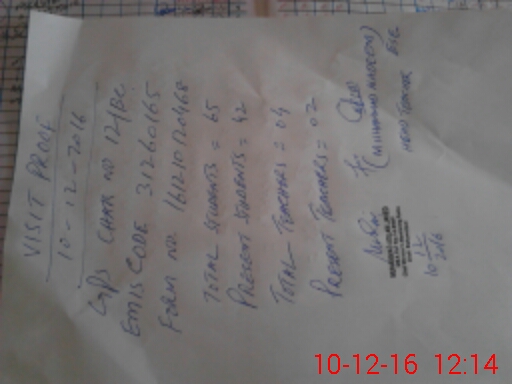 VISIT PROOF
10-12-2016
GPS CHAK NO 124BC
EMIS CODE 31260165
FORM NO. 161210120468
TOTAL STUDENTS = 65
PRESENT STUDENTS = 42
TOTAL TEACHERS = 04
PRESENT TEACHERS = 02
(MUHAMMAD NADEEM)
HEAD TEACHER ESE
10 12 2016
10-12-16 12:14